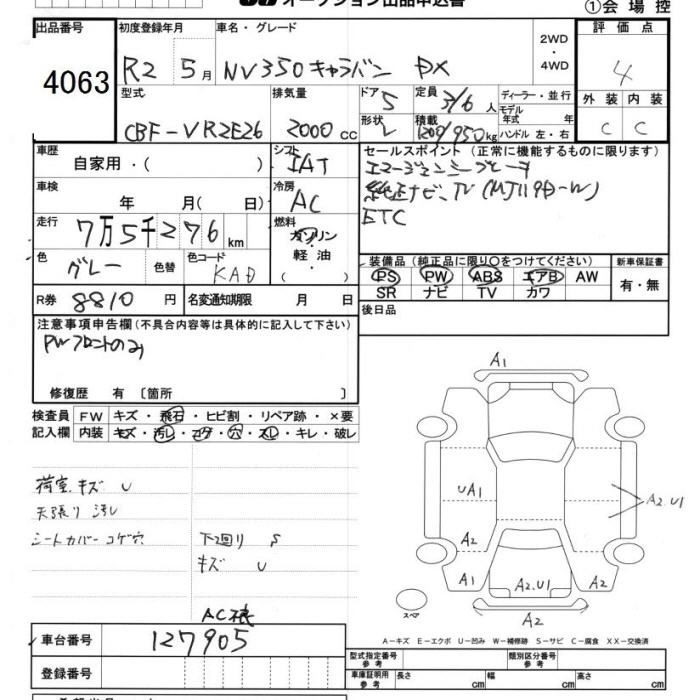 オークション出品申込書
①会場控
出品番号
4063
初度登録年月
R2 5月
車名・グレード
NV350キャラバン DX
2WD・4WD
評価点
4
型式
CBF-VR2E26
排気量
2000cc
ドア 5
形状 V
定員 3/6人
積載 1200/950kg
ディーラー・並行
モデル年式 年
ハンドル 左・右
外装 内装
C C
車歴
自家用・( )
シフト
IAT
車検
年 月( 日)
冷房
AC
走行
7万5千276km
燃料
ガソリン・軽油・( )
色
グレー
色替
色コード
KAD
R券 8810円
名変通知期限 月 日
セールスポイント(正常に機能するものに限ります)
エマージェンシーブレーキ
純正ナビ、TV
ETC
装備品(純正品に限り○をつけてください)
PS PW ABS エアB AW
SR ナビ TV カワ
新車保証書
有・無
後日品
注意事項申告欄(不具合内容等は具体的に記入して下さい)
PWフロントのみ
修復歴 有 〔箇所 〕
検査員記入欄
FW キズ・飛石・ヒビ割・リペア跡・×要
内装 キズ・汚レ・コゲ・穴・スレ・キレ・破レ
荷室キズ U
天張り 汚レ
シートカバー コゲ穴
下廻り S
キズ U
AC
車台番号 127905
登録番号
A1
UA1
A2.U1
A2
A1
A2.U1
A2
A2
スペア
A-キズ E-エクボ U-凹み W-補修跡 S-サビ C-腐食 XX-交換済
型式指定番号 参考
類別区分番号 参考
車庫証明用 参考 長さ cm 幅 cm 高さ cm